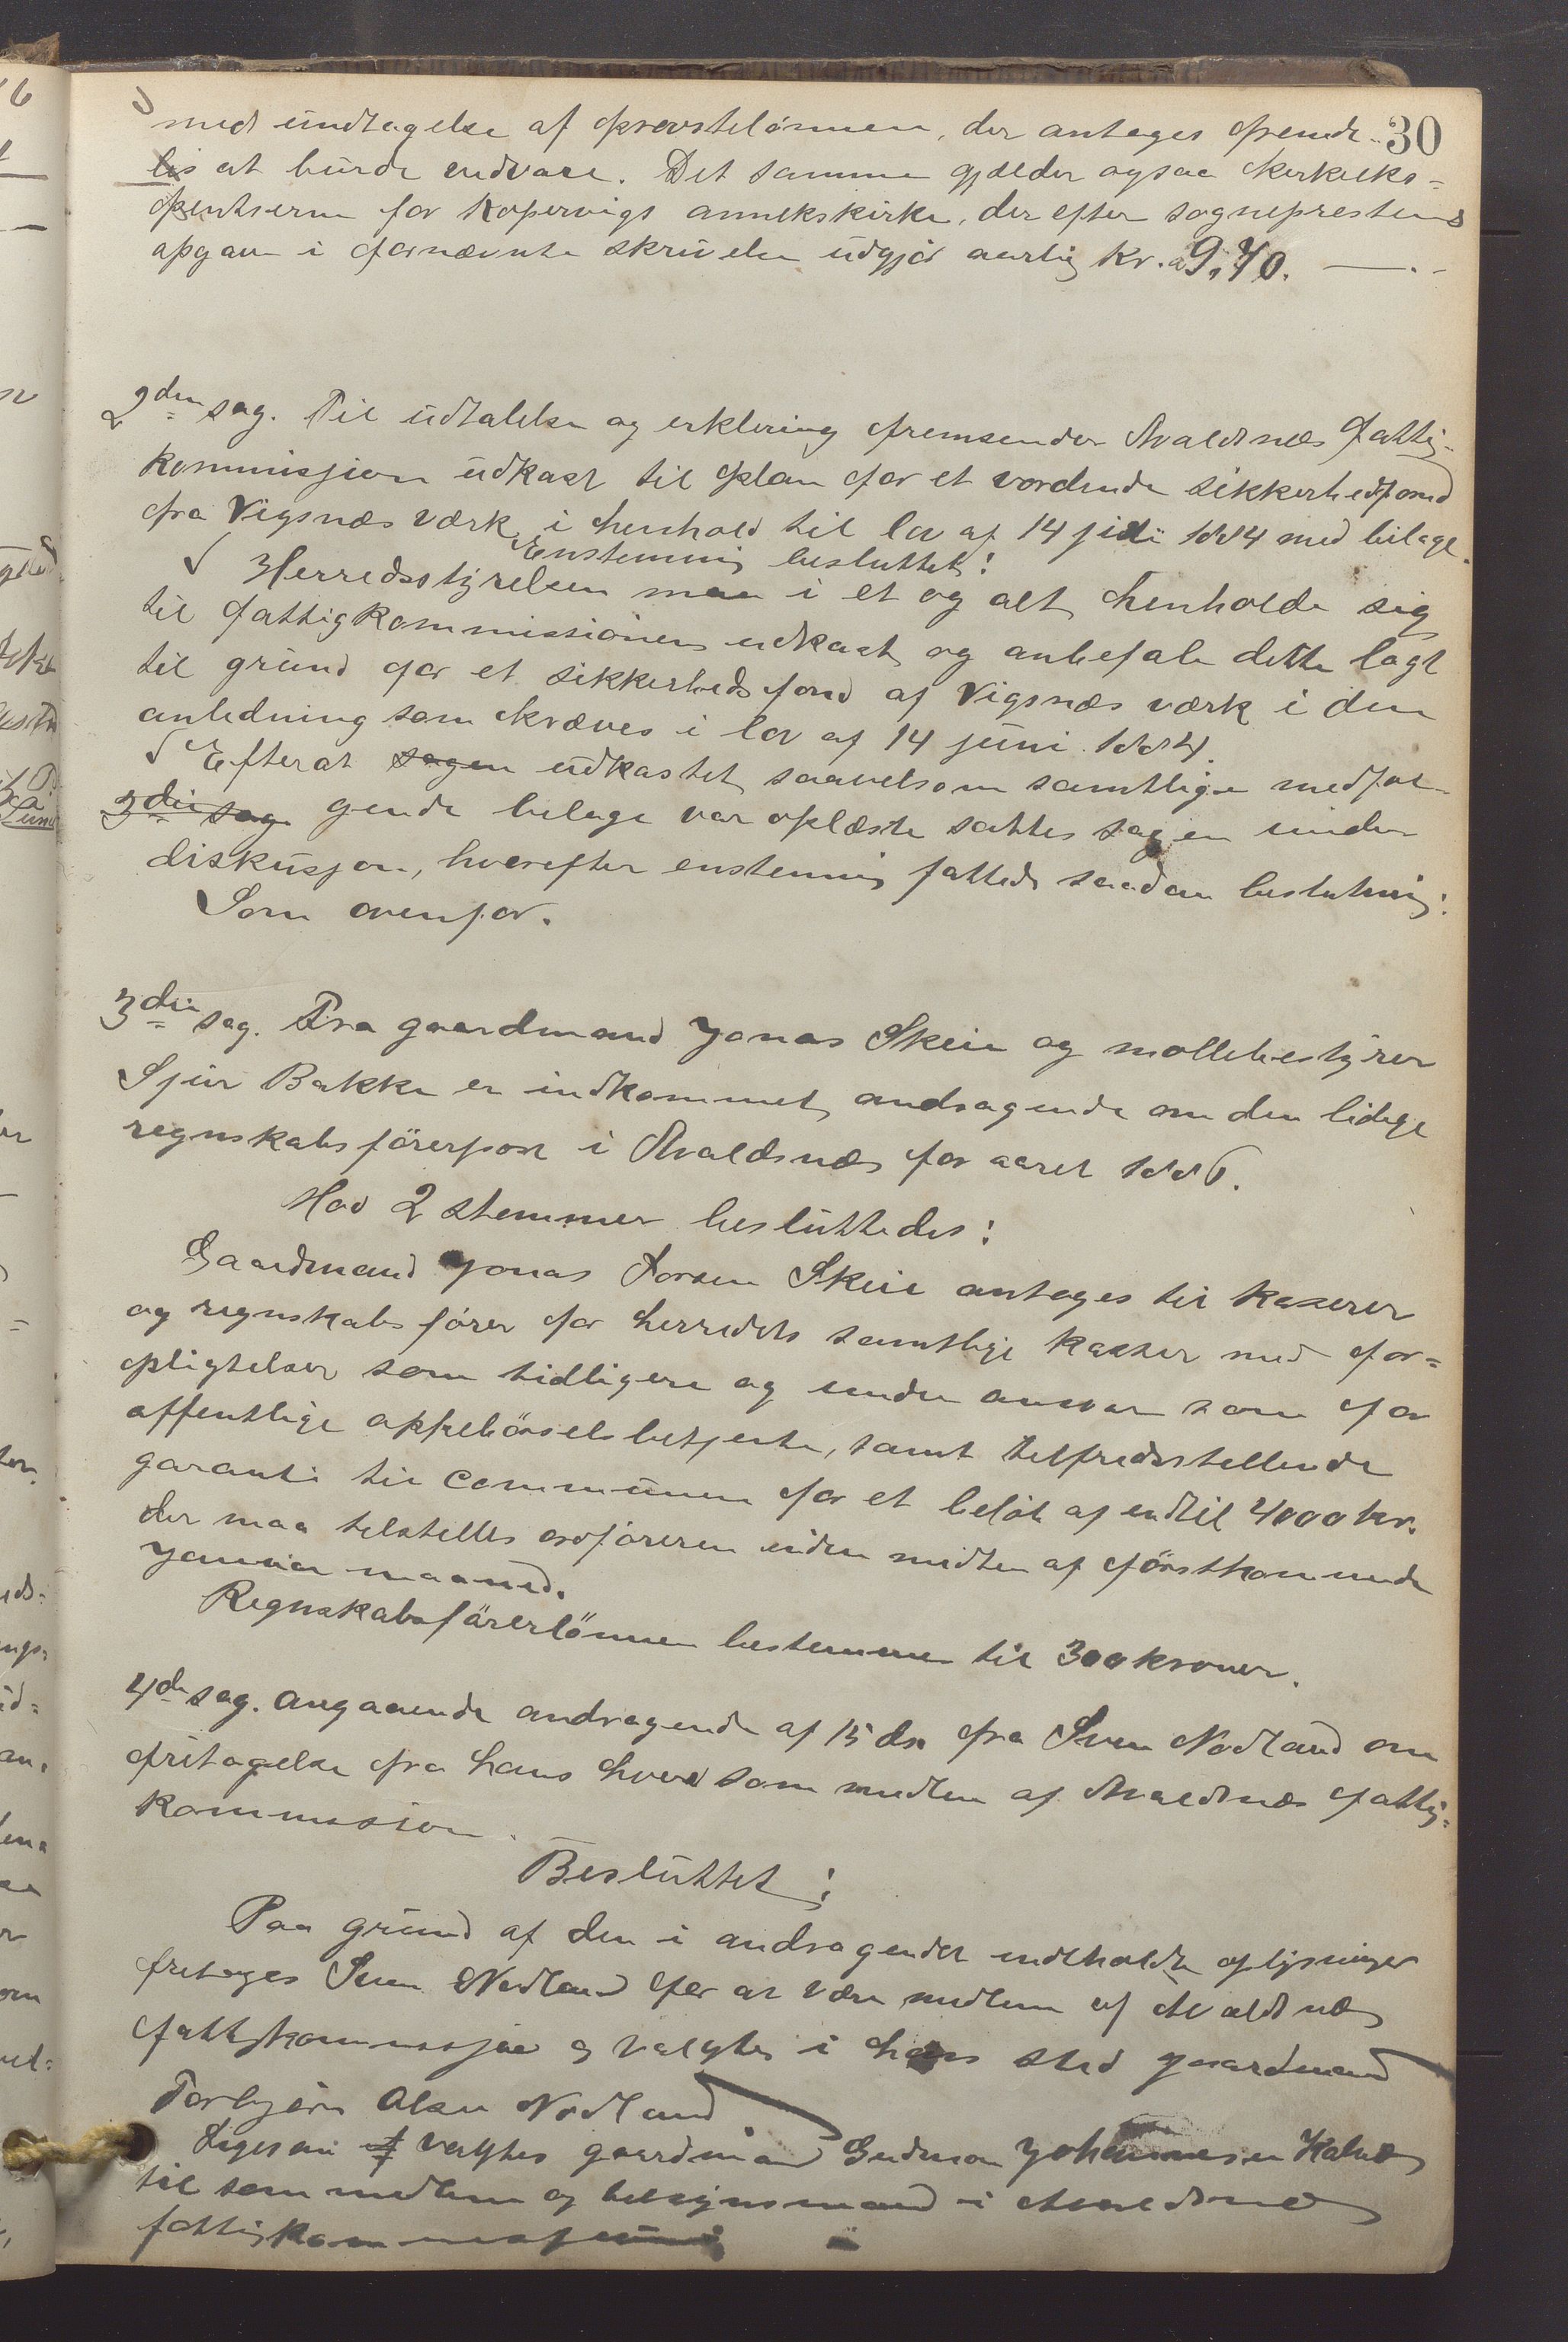 30
med undtagelse af provstelønnen, der antages fremde-
les at burde vedvare. Det samme gjælder ogsaa kirkeeks-
pentserne for Kopervigs annekskirke, der efter sogneprestens
opgave i fornævnte skrivelse udgjør aarlig Kr. 9,70.
2den sag. Til udtalelse og erklæring fremsender Avaldsnæs fattig-
kommissjon udkast til plan for et vordende sikkerhedsfond
fra Vigsnæs værk i henhold til lov af 14 juni 1884 med bilage.
Enstemmig besluttet:
Herredsstyrelsen maa i et og alt henholde sig
til fattigkommissionens udkast og anbefale dette lagt
til grund for et sikkerhedsfond af Vigsnæs værk i den
anledning som kræves i lov af 14 juni 1884.
Efterat sagen udkastet saavelsom samtlige medføl-
3die sag gende bilage var oplæste sattes sagen under
diskusjon, hvorefter enstemmig fattedes saadan beslutning:
Som ovenfor.
3die sag. Fra gaardmand Jonas Skeie og møllebestyrer
Sjur Bakke er indkommet andragende om den ledige
regnskabsførerpost i Avaldsnæs for aaret 1886.
Mod 2 stemmer besluttedes:
Gaardmand Jonas Skeie antages til kaserer
og regnskabsfører for herredets samtlige kasser med for-
pligtelser som tidligere og under ansvar som for
offentlige oppebørselsbetjente, samt tilfredsstellende
garanti til communen for et beløb af indtil 4000 kr.
der maa tilstilles ordføreren inden midten af førstkommende
Januar maaned.
Regnskabsførerlønnen bestemmes til 300 kroner.
4de sag. Angaaende andragende af 15 ds. fra Sven Nodland om
fritagelse fra hans hverv som medlem af Avaldsnæs fattig-
kommission.
Besluttet:
Paa grund af den i andragendet indeholdte oplysninger
fritages Sven Nodland for at være medlem af Avaldsnæs
fattigkommissjon og valgtes i hans sted gaardmand
Torbjørn Olsen Nodland.
Ligesom valgtes gaardmand Gudmon Johannesen Kalnæs
til som medlem og tilsynsmand i Avaldsnæs
fattigkommissjon